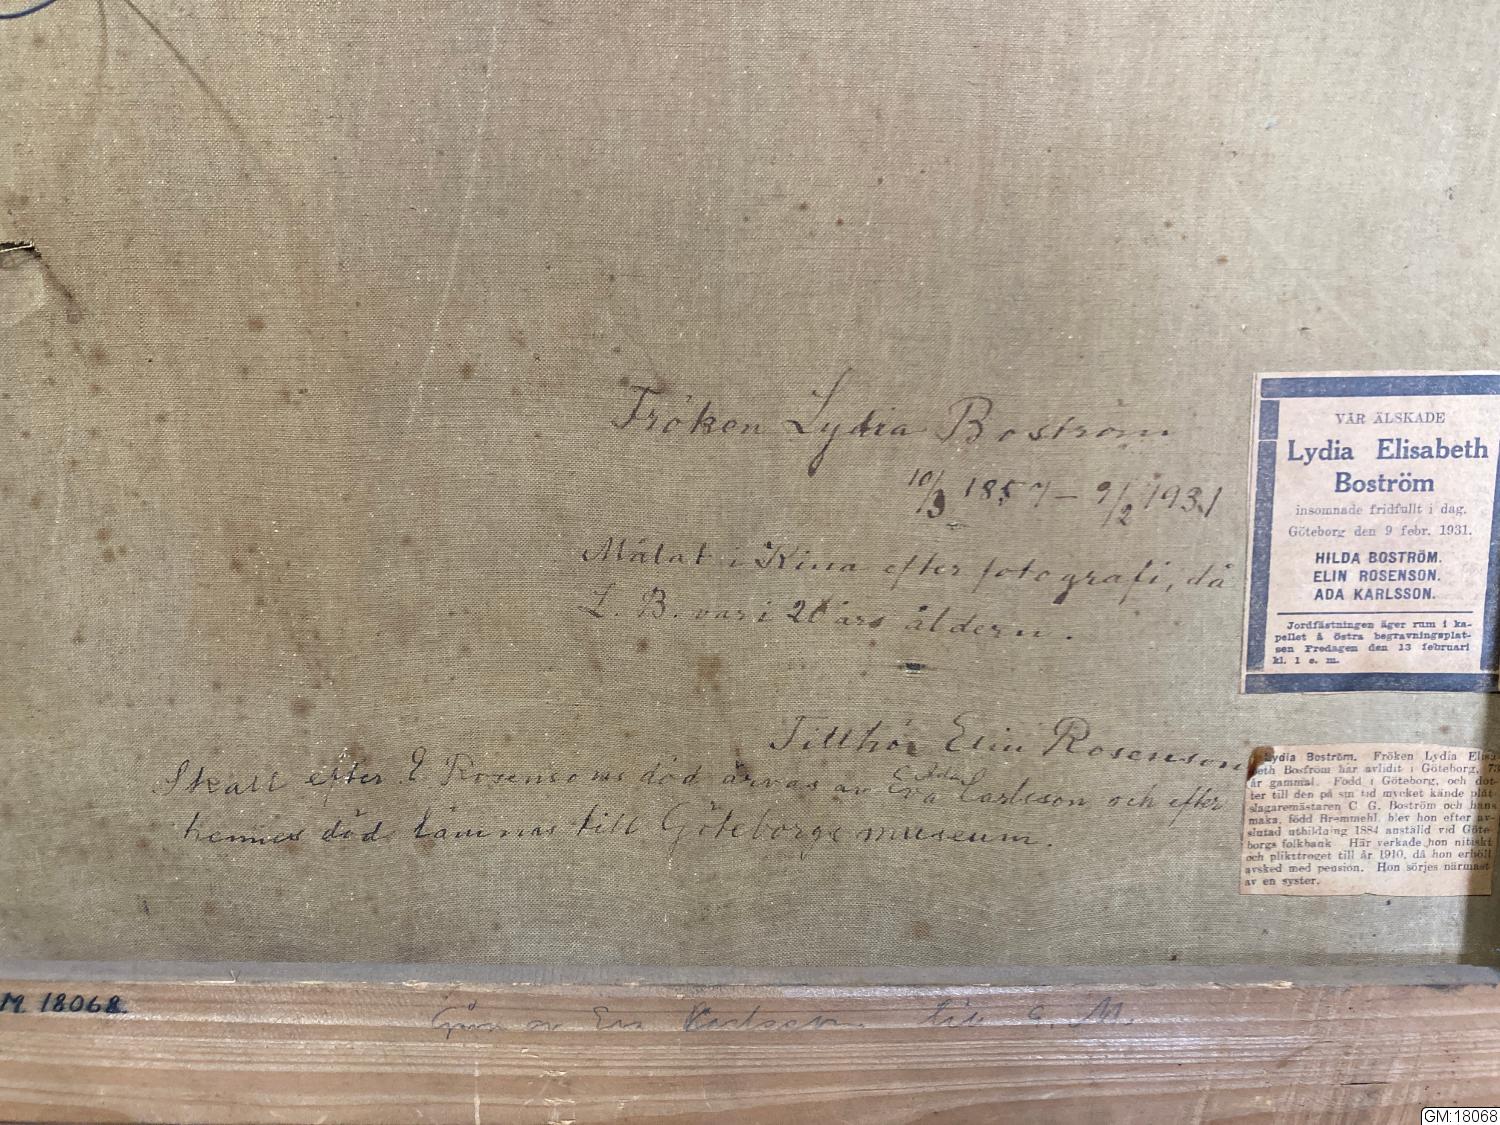 Fröken Lydia Boström
10/3 1857 - 9/2 1931
Målat i Kina efter fotografi, då
L. B. var i 20 års åldern.
Tillhör Elin Rosenson
Skall efter E Rosensons död ärvas av Eva Carlsson och efter
hennes död lämnas till Göteborgs museum.
VÅR ÄLSKADE
Lydia Elisabeth
Boström
insomnade fridfullt i dag.
Göteborg den 9 febr. 1931.
HILDA BOSTRÖM.
ELIN ROSENSON.
ADA KARLSSON.
Jordfästningen äger rum i ka-
pellet å östra begravningsplat-
sen Fredagen den 13 februari
kl. 1 e. m.
Lydia Boström. Fröken Lydia Elisa-
beth Boström har avlidit i Göteborg,
år gammal. Född i Göteborg, och dot-
ter till den på sin tid mycket kände plåt-
slagaremästaren C G. Boström och hans
maka, född Bremmehl, blev hon efter av-
slutad utbildning 1884 anställd vid Göte-
borgs folkbank Här verkade hon nitiskt
och plikttroget till år 1910, då hon erhöll
avsked med pension. Hon sörjes närmast
av en syster.
M. 18068.
av Karlsson till G. M.
GM:18068